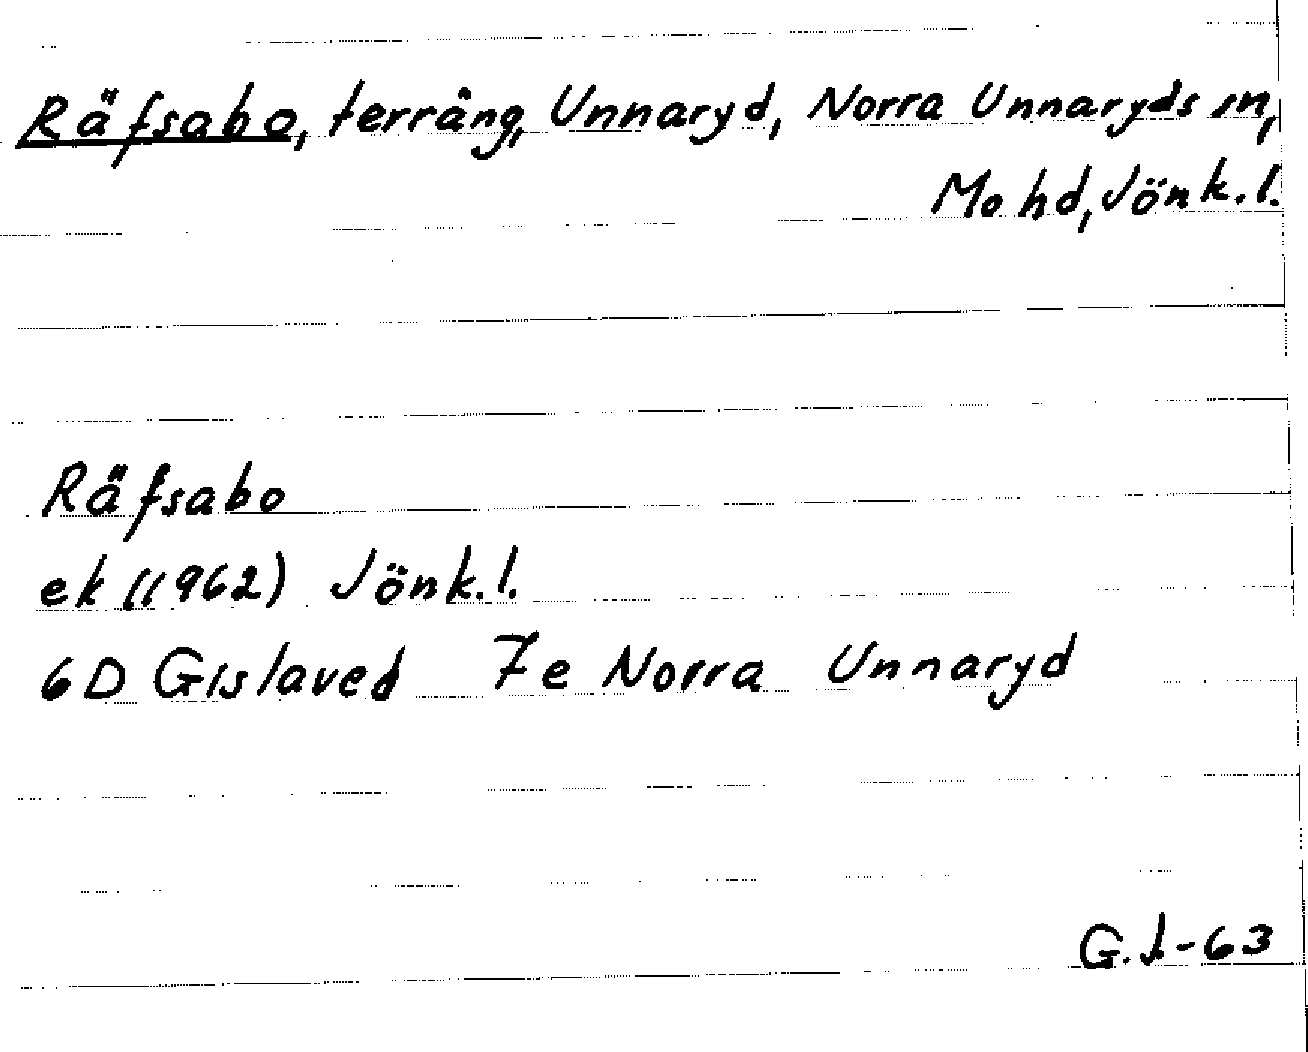 Räfsabo, terräng, Unnaryd, Norra Unnaryds sn,
Mo hd, Jönk.l.
Räfsabo
ek (1962) Jönk.l.
6D Gislaved 7e Norra Unnaryd
G.J.-63